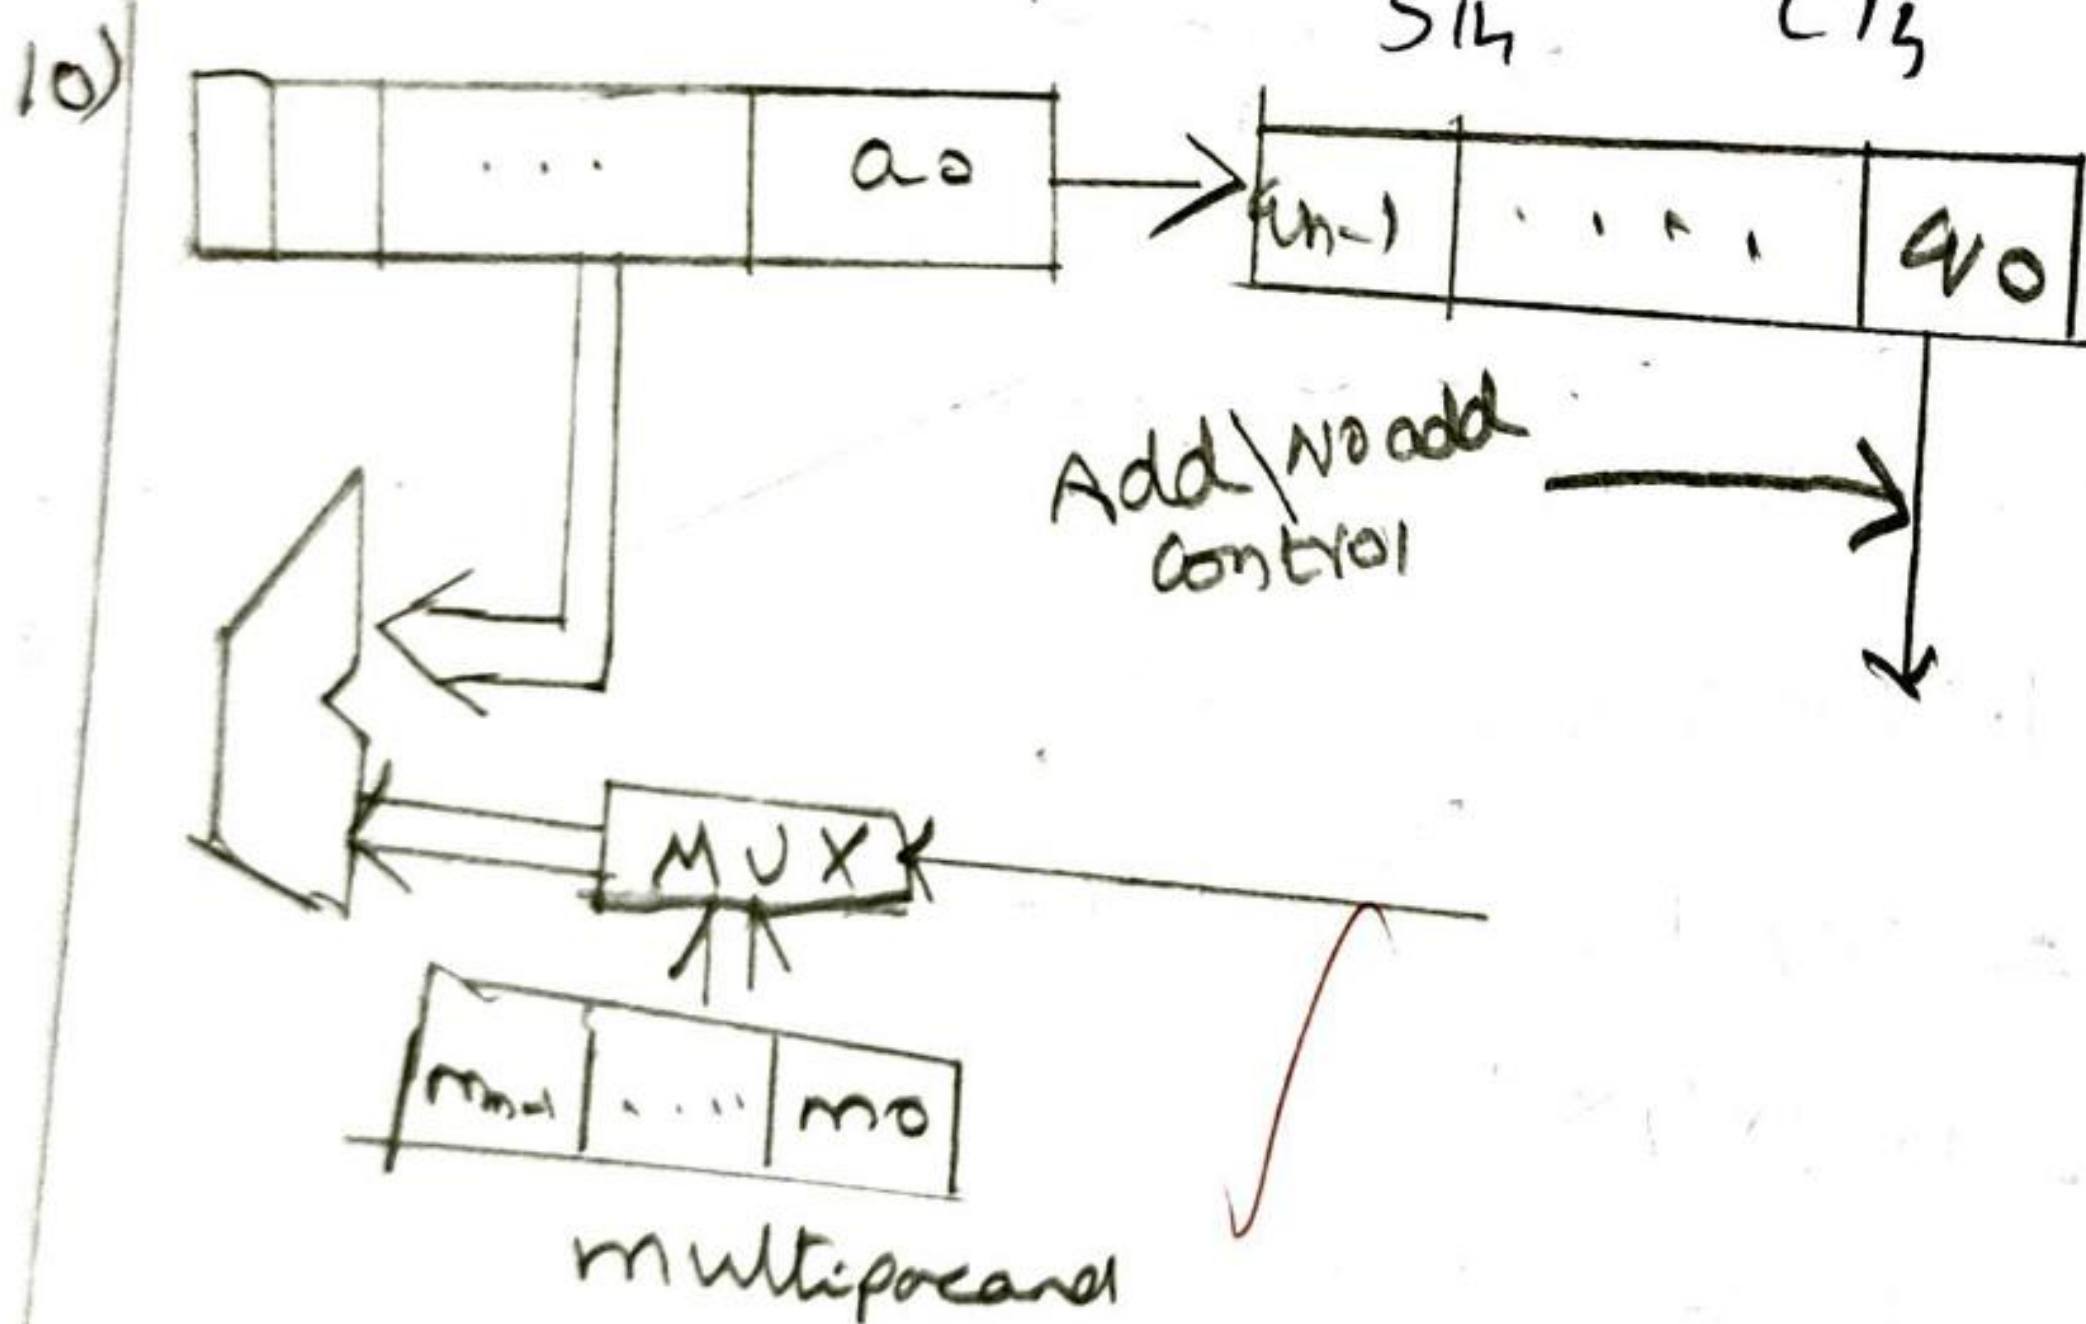 10)
a0
qn-1
q0
Add\No add
control
MUX
m0
multipocand